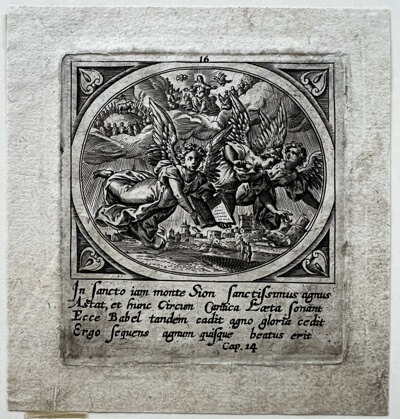 16
In sancto iam monte Sion sanctissimus agnus
Astat, et hunc Circum Cantica Læta sonant
Ecce Babel tandem cadit agno gloria cedit
Ergo sequens agnum quisque beatus erit
Cap. 14